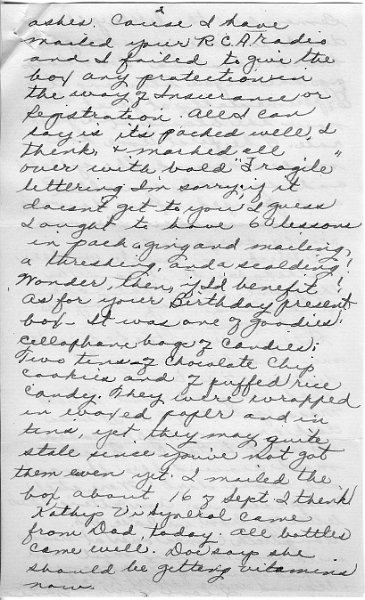 2
ashes. Cause I have
mailed your R C A radio
and I failed to give the
box any protection in
the way of Insurance or
Registration. All I can
say is its packed well, I
think, & marked all
over with bold "Fragile"
lettering I'm sorry, if it
doesn't get to you, I guess
I ought to have 60 lessons
in packaging and mailing,
a threshing, and a scolding!
Wonder, then, if I'd benefit!
As for your Birthday present
box - It was one of goodies:
cellophane bags of candies;
Two tins of chocolate chip
cookies and of puffed rice
candy. They were wrapped
in waxed paper and in
tins, yet they may quite
stale since you've not got
them even yet. I mailed the
box about 16 of Sept. I think!
Vi Syneral came
from Dad, today. All bottles
came well. Doc says she
should be getting vitamins
now.